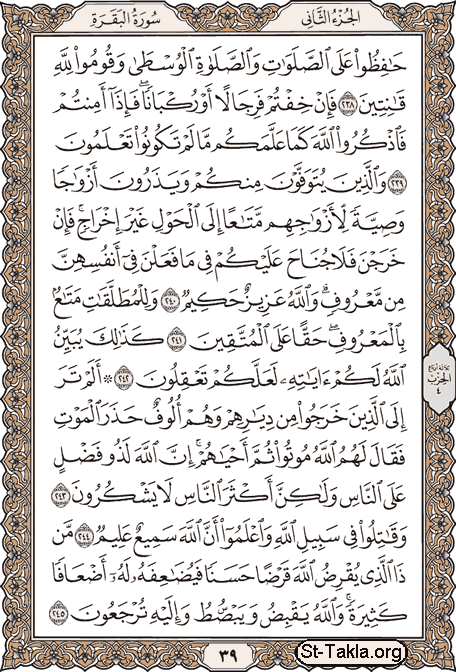 الجزء الثاني
سورة البقرة
حَٰفِظُوا۟ عَلَى ٱلصَّلَوَٰتِ وَٱلصَّلَوٰةِ ٱلْوُسْطَىٰ وَقُومُوا۟ لِلَّهِ
قَٰنِتِينَ ٢٣٨ فَإِنْ خِفْتُمْ فَرِجَالًا أَوْ رُكْبَانًا ۖ فَإِذَآ أَمِنتُمْ
فَٱذْكُرُوا۟ ٱللَّهَ كَمَا عَلَّمَكُم مَّا لَمْ تَكُونُوا۟ تَعْلَمُونَ
٢٣٩ وَٱلَّذِينَ يُتَوَفَّوْنَ مِنكُمْ وَيَذَرُونَ أَزْوَٰجًا
وَصِيَّةً لِّأَزْوَٰجِهِم مَّتَٰعًا إِلَى ٱلْحَوْلِ غَيْرَ إِخْرَاجٍ ۚ فَإِنْ
خَرَجْنَ فَلَا جُنَاحَ عَلَيْكُمْ فِى مَا فَعَلْنَ فِىٓ أَنفُسِهِنَّ
مِن مَّعْرُوفٍ ۗ وَٱللَّهُ عَزِيزٌ حَكِيمٌ ٢٤٠ وَلِلْمُطَلَّقَٰتِ مَتَٰعٌۢ
بِٱلْمَعْرُوفِ ۖ حَقًّا عَلَى ٱلْمُتَّقِينَ ٢٤١ كَذَٰلِكَ يُبَيِّنُ
ٱللَّهُ لَكُمْ ءَايَٰتِهِۦ لَعَلَّكُمْ تَعْقِلُونَ ٢٤٢ ۞ أَلَمْ تَرَ
إِلَى ٱلَّذِينَ خَرَجُوا۟ مِن دِيَٰرِهِمْ وَهُمْ أُلُوفٌ حَذَرَ ٱلْمَوْتِ
فَقَالَ لَهُمُ ٱللَّهُ مُوتُوا۟ ثُمَّ أَحْيَٰهُمْ ۚ إِنَّ ٱللَّهَ لَذُو فَضْلٍ
عَلَى ٱلنَّاسِ وَلَٰكِنَّ أَكْثَرَ ٱلنَّاسِ لَا يَشْكُرُونَ ٢٤٣
وَقَٰتِلُوا۟ فِى سَبِيلِ ٱللَّهِ وَٱعْلَمُوٓا۟ أَنَّ ٱللَّهَ سَمِيعٌ عَلِيمٌ ٢٤٤ مَّن
ذَا ٱلَّذِى يُقْرِضُ ٱللَّهَ قَرْضًا حَسَنًا فَيُضَٰعِفَهُۥ لَهُۥٓ أَضْعَافًا
كَثِيرَةً ۚ وَٱللَّهُ يَقْبِضُ وَيَبْصُۜطُ وَإِلَيْهِ تُرْجَعُونَ ٢٤٥
ثلاثة أرباع
الحزب
٤
٣٩
St-Takla.org